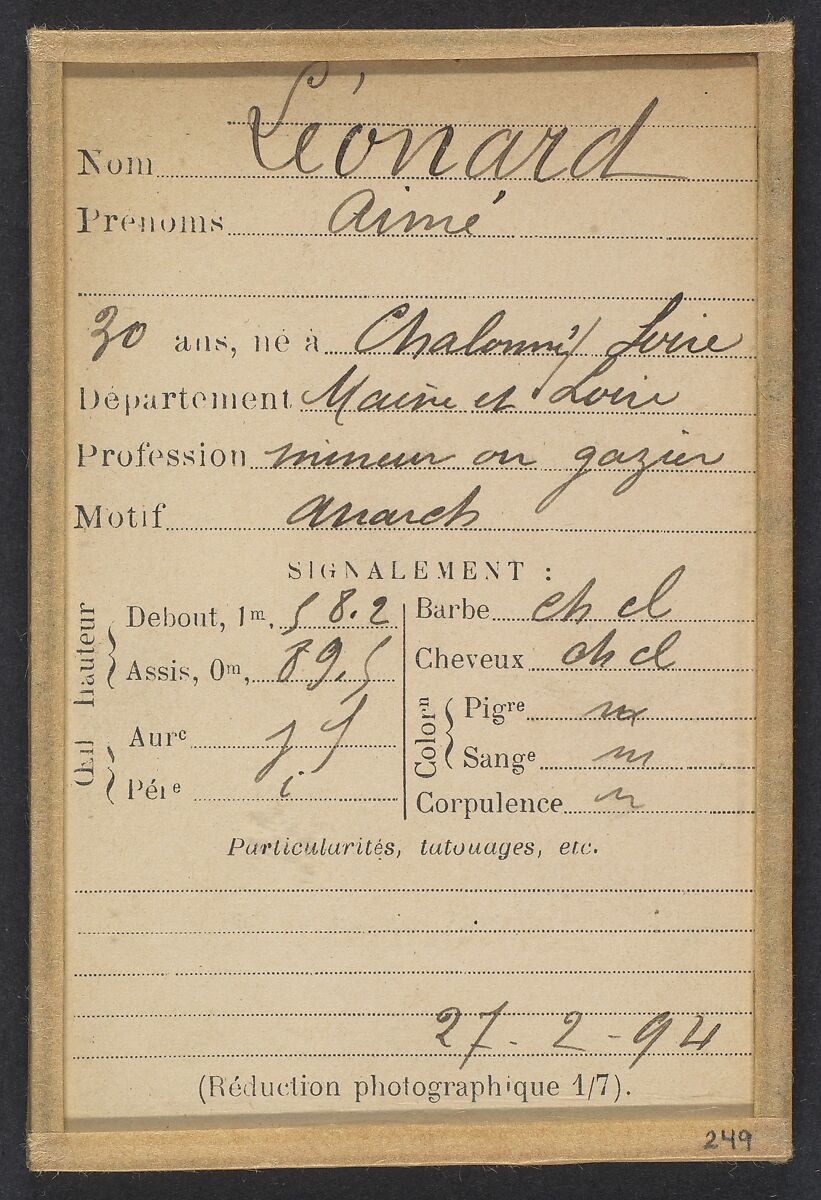 Nom Léonard
Prénoms Aimé
30 ans, né à Chalonne s/ Loire
Département Maine et Loire
Profession mineur ou gazier
Motif anarch
SIGNALEMENT :
hauteur
Debout, 1m, 58.2
Assis, 0m, 89,5
Œil
Aurᵉ
Périᵉ i
Barbe ch cl
Cheveux ch cl
Colorⁿ
Pigʳᵉ m
Sangᵉ m
Corpulence m
Particularités, tatouages, etc.
27-2-94
(Réduction photographique 1/7).
249